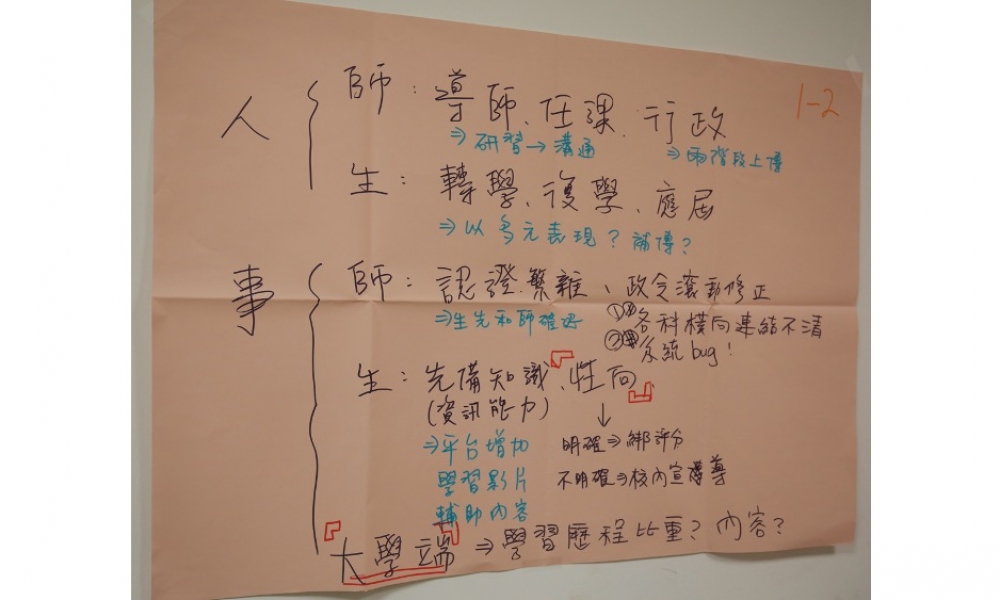 1-2
人 師：導師、任課、行政
⇒研習→溝通 ⇒兩階段上傳
生：轉學、復學、應屆
⇒以多元表現？補傳？
事 師：認證繁雜、政令滾動修正
⇒生先和師確好 ①各科橫向連結不清
②系統bug！
生：先備知識、『性向』
(資訊能力) ↓
⇒平台增加 明確⇒綁評分
學習影片 不明確⇒校內宣導
輔助內容
『大學端』⇒學習歷程比重？內容？